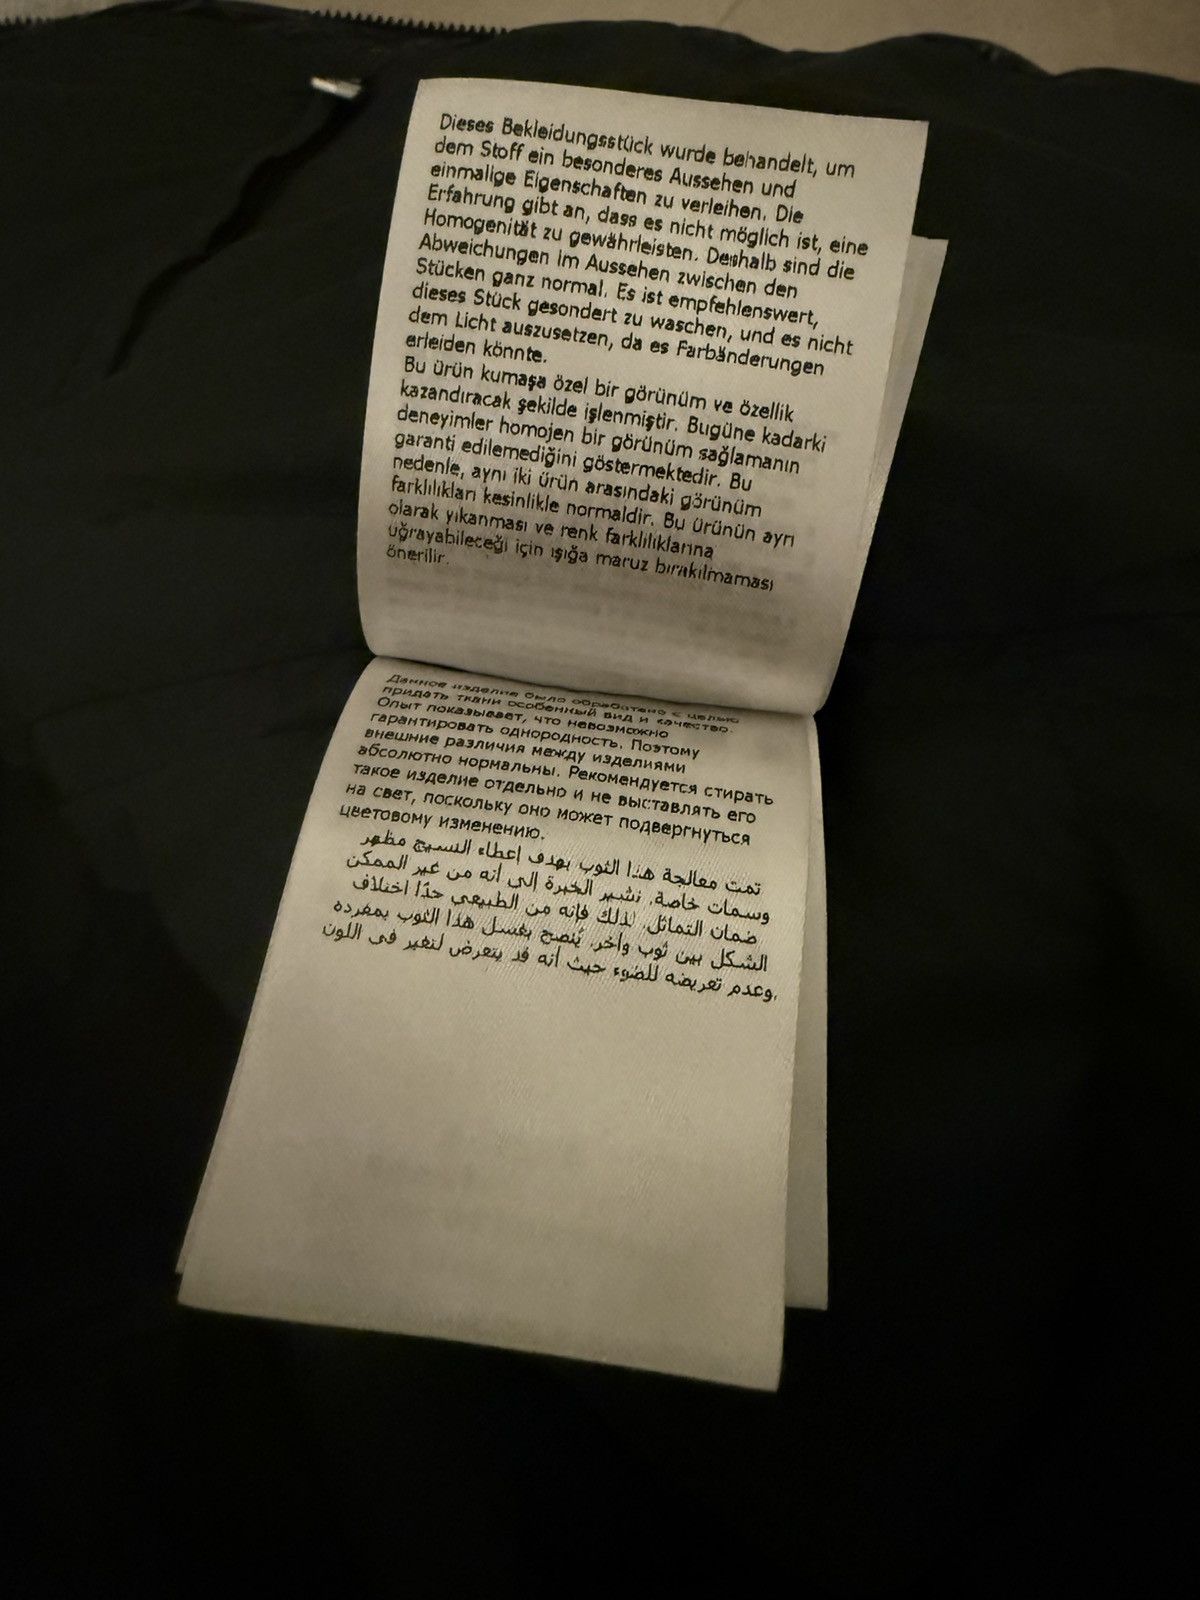 Dieses Bekleidungsstück wurde behandelt, um
dem Stoff ein besonderes Aussehen und
einmalige Eigenschaften zu verleihen. Die
Erfahrung gibt an, dass es nicht möglich ist, eine
Homogenität zu gewährleisten. Deshalb sind die
Abweichungen im Aussehen zwischen den
Stücken ganz normal. Es ist empfehlenswert,
dieses Stück gesondert zu waschen, und es nicht
dem Licht auszusetzen, da es Farbänderungen
erleiden könnte.
Bu ürün kumaşa özel bir görünüm ve özellik
kazandıracak şekilde işlenmiştir. Bugüne kadarki
deneyimler homojen bir görünüm sağlamanın
garanti edilemediğini göstermektedir. Bu
nedenle, aynı iki ürün arasındaki görünüm
farklılıkları kesinlikle normaldir. Bu ürünün ayrı
olarak yıkanması ve renk farklılıklarına
uğrayabileceği için ışığa maruz bırakılmaması
önerilir.
Данное изделие было обработано с целью
придать ткани особенный вид и качество.
Опыт показывает, что невозможно
гарантировать однородность. Поэтому
внешние различия между изделиями
абсолютно нормальны. Рекомендуется стирать
такое изделие отдельно и не выставлять его
на свет, поскольку оно может подвергнуться
цветовому изменению.
تمت معالجة هذا الثوب بهدف إعطاء النسيج مظهر
وسمات خاصة. تشير الخبرة إلى أنه من غير الممكن
ضمان التماثل. لذلك فإنه من الطبيعي جدًا اختلاف
الشكل بين ثوب وآخر. يُنصح بغسل هذا الثوب بمفرده
وعدم تعريضه للضوء حيث أنه قد يتعرض لتغير في اللون.